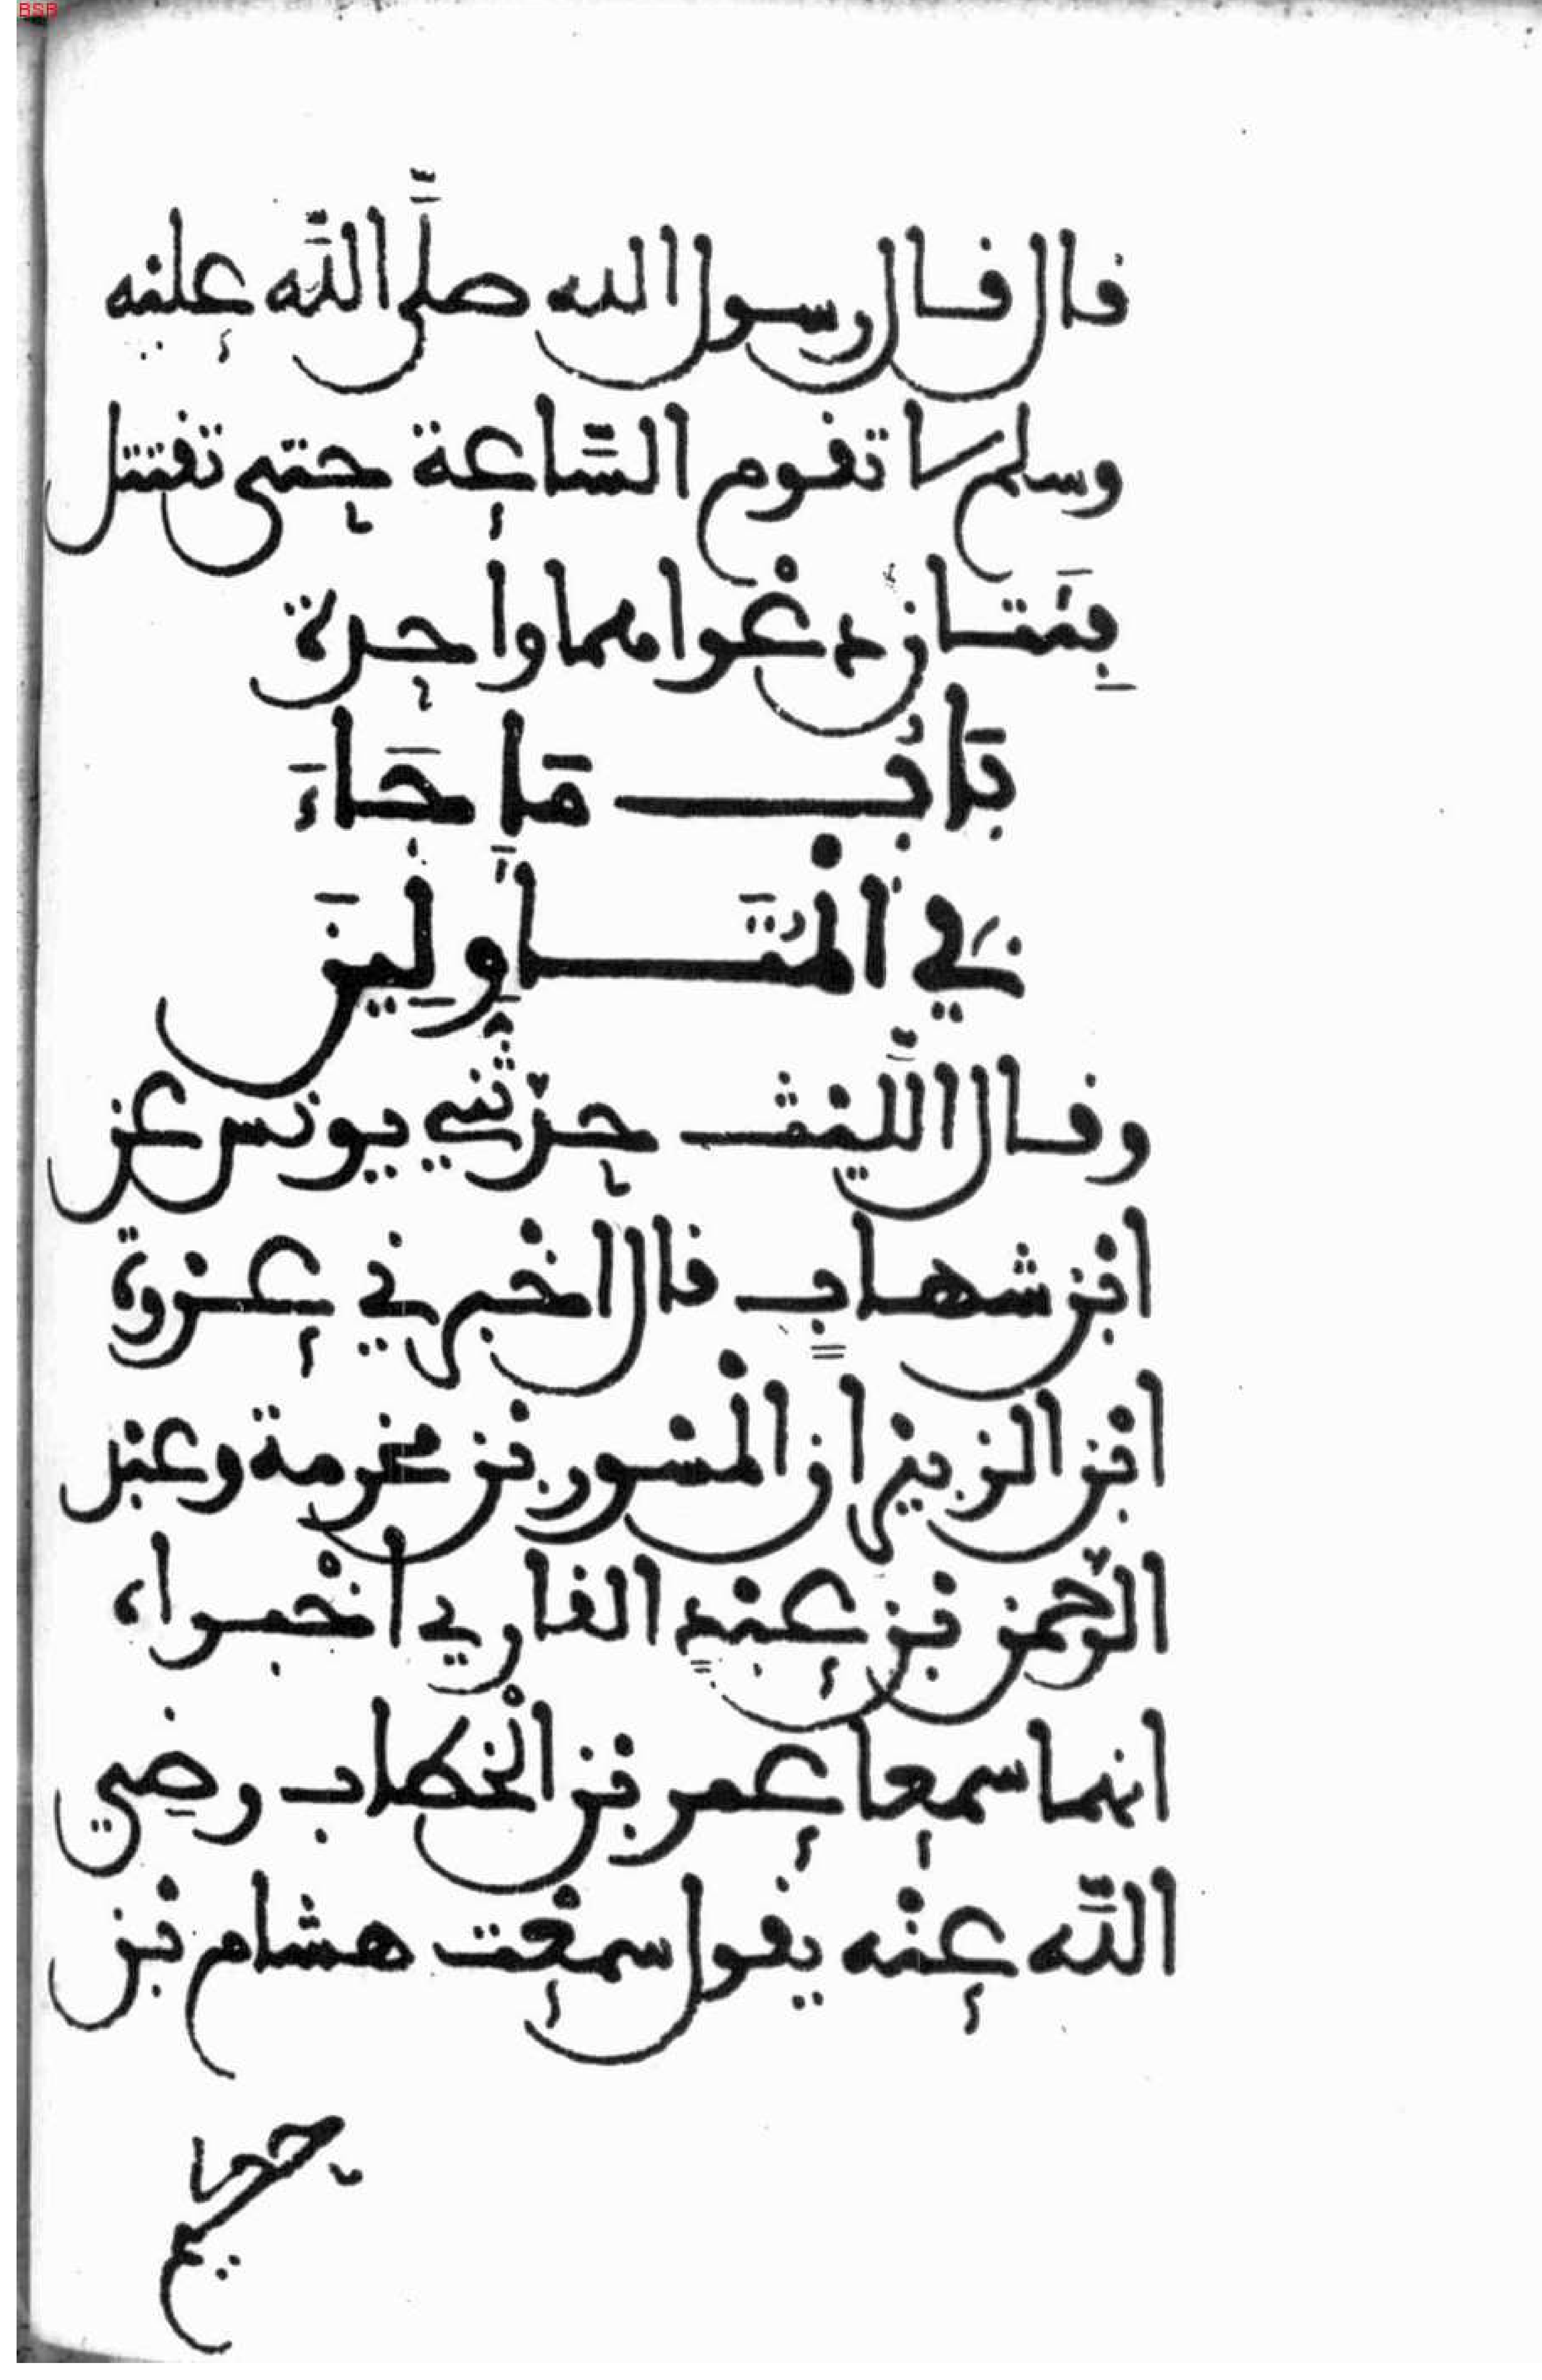 BSB
قال قال رسول الله صلَّى اللَّه عليه
وسلم لا تقوم السَّاعة حتى تقتتل
فِئَتان دعْواهما واحدة
بَابُ مَا جَاءَ
فِي الْمُتَأَوِلِينَ
وقال اللَّيث حدّثني يونس عن
ابن شهابٍ قال اخبرني عروة
ابن الزبير ان الْمسْور بن مخرمة وعبد
الرّحمن بن عبدٍ القاري اخْبراه
انهما سمعا عمر بن الْخطاب رضِي
اللَّه عنْه يقول سمعْت هشام بْن
حكيم